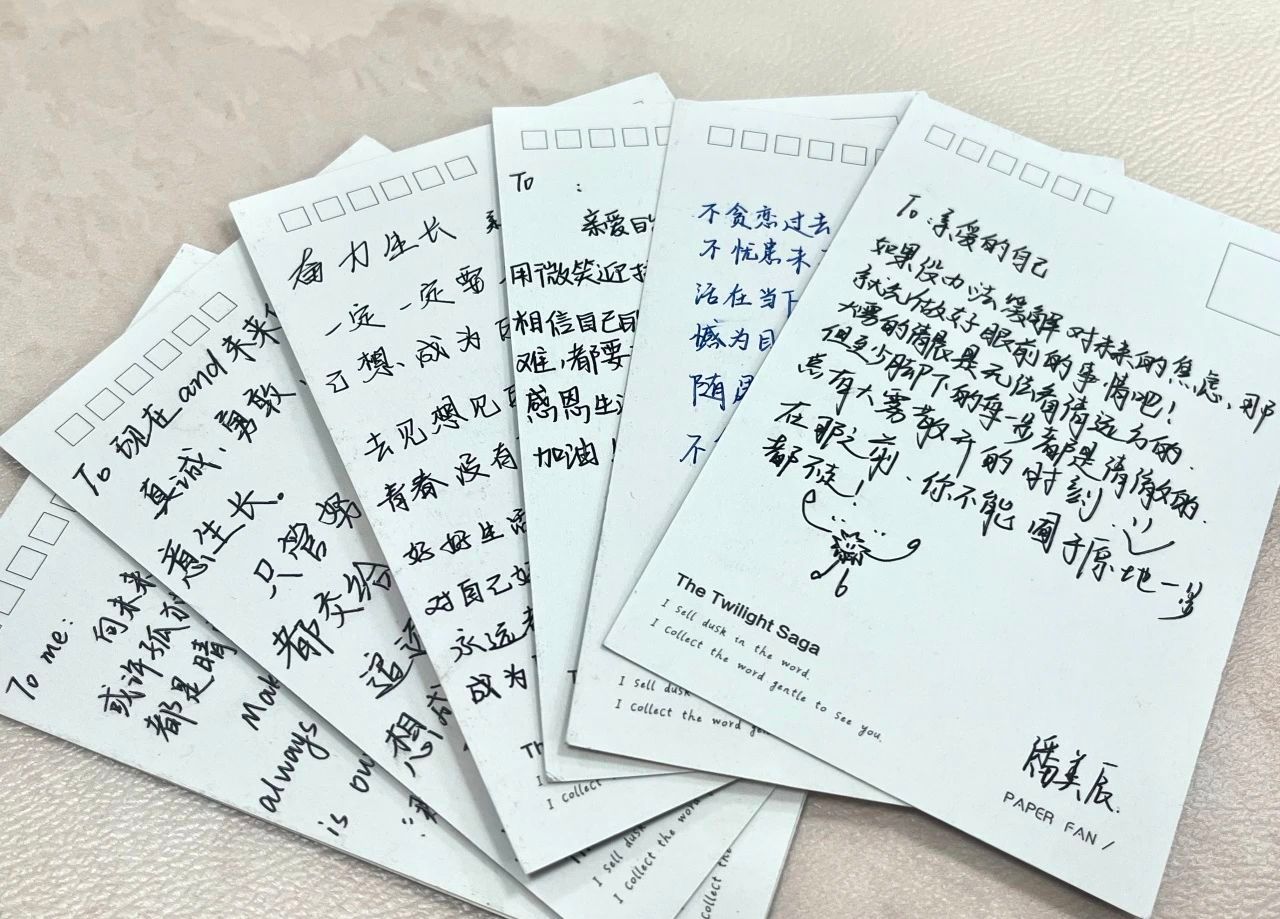 To me:
向未来
或许孤
都是晴
Mak
always
is ou
To 现在 and 未来
真诚、勇敢、
意生长。
只管努
都交给
追逐
想成
奋力生长
一定一定要
己想、成为
去见想见
青春没有
好好生活
对自己好
永远
成为
Th
I
I collect
I sell dus
I collect the word
collect the
To :
亲爱的
用微笑迎接
相信自己的
难，都要
感恩生活
加油！
不贪恋过去
不忧患未
活在当下
憾为目
随
不
I sell dusk
I collect the word ge
To：亲爱的自己
如果没办法缓解对未来的焦虑，那
就去做好眼前的事情吧！
大雾的清晨是无法看清远方的.
但至少脚下的每一步都是清澈的.
总有大雾散开的时刻.
在那之前、你不能囿于原地一步
都不走！
The Twilight Saga
I sell dusk in the word.
I collect the word gentle to see you.
潘美辰.
PAPER FAN /